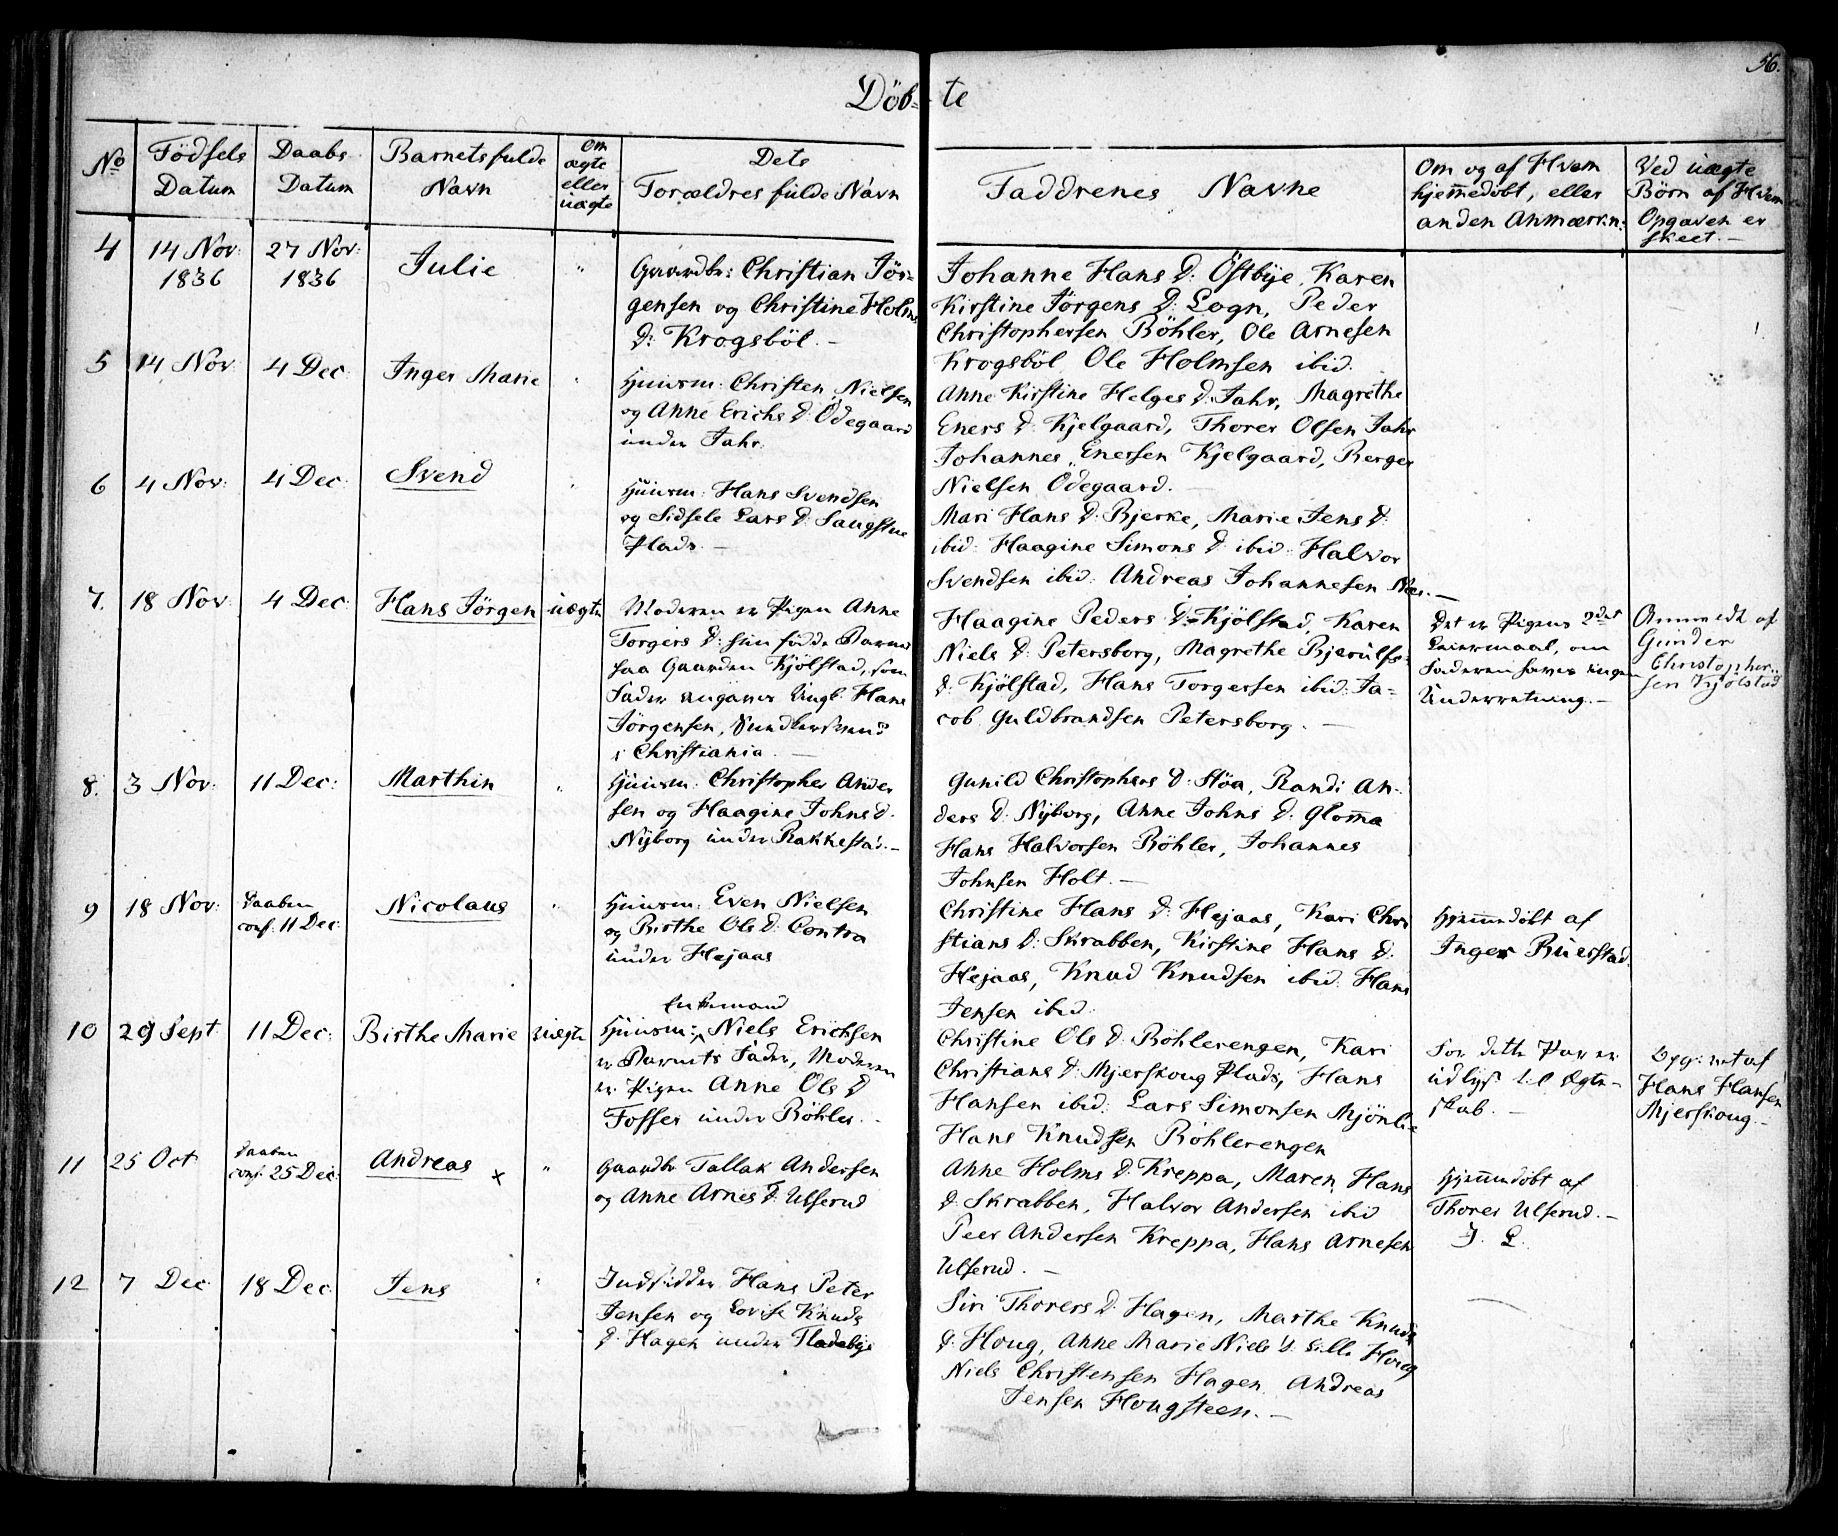 56.
Döb- te
No
Födsels Datum
Daabs Datum
Barnets fulde Navn
Om ægte eller uægte
Dets Forældres fulde Navn
Faddrenes Navne
Om og af Hvem hjemedöbt, eller anden Anmærkn:
Ved uægte Börn af Hvem Opgaven er skeet. –
4
14 Nov: 1836
27 Nov: 1836
Julie
"
Gaardbr: Christian Jör-
gensen og Christine Holms
D: Krogsböl. –
Johanne Hans D: Östbye, Karen
Kirstine Jörgens D: Logn, Peder
Christophersen Böhler, Ole Arnesen
Krogsböl Ole Holmsen ibid.
5
14 Nov
4 Dec
Inger Marie
"
Huusm: Christen Nielsen
og Anne Erichs D: Ödegaard
under Jahr.
Anne Kirstine Helges D: Jahr, Magrethe
Eners D: Kjelgaard, Thorer Olsen Jahr
Johannes Enersen Kjelgaard, Berger
Nielsen Ödegaard. –
6
4 Nov:
4 Dec:
Svend
"
Huusm: Hans Svendsen
og Sidsele Lars D: Saugstue
Plads. –
Mari Hans D: Bjerke, Marie Jens D:
ibid: Haagine Simons D: ibid: Halvor
Svendsen ibid: Andreas Johannesen Næs. –
7.
18 Nov:
4 Dec:
Hans Jörgen
uægte
Moderen er Pigen Anne
Torgers D: som födde Barnet
paa Gaarden Kjölstad, som
Fader angaves Ungk. Hans
Jörgensen,
i Christiania. –
Haagine Peders D: Kjölstad, Karen
Niels D: Petersborg, Magrethe Bjerulfs-
D: Kjölstad, Hans Torgersen ibid: Ja-
cob Guldbrandsen Petersborg. –
Det er Pigens 2det
Leiermaal, om
Faderen haves ingen
Underretning. –
Anmeldt af
Gunder
Christopher-
sen Kjölstad
8.
3 Nov:
11 Dec:
Marthin
"
Huusm: Christopher Ander
sen og Haagine Johns D.
Nyborg under Rakkestad. –
Gunild Christophers D: Stöa, Randi An-
ders D: Nyborg, Anne Johns D: Gloma
Hans Halvorsen Böhler, Johannes
Johnsen Holt. –
9
18 Nov:
Daaben
conf. 11 Dec:
Nicolaus
"
Huusm: Even Nielsen
og Birthe Ols D: Contra
under Hejaas
Christine Hans D: Hejaas, Kari Chri
stians D: Skrabben, Kirstine Hans D.
Hejaas, Knud Knudsen ibid: Hans
Jensen ibid.
Hjemmedöbt af
Inger Buerstad.
10
29 Sept
11 Dec:
Birthe Marie
uægte
Enkemand
Huusm: Niels Erichsen
er Barnets Fader, Moderen
er Pigen Anne Ols D
Fosser under Böhler. –
Christine Ols D: Böhlerengen, Kari
Christians D: Mjerskoug Plads, Hans
Hansen ibid: Lars Simonsen Mjönli-
Hans Knudsen Böhlerengen
For dette Par er
udlyst til Ægte-
skab. –
Opgivet af
Hans Hansen
Mjerskoug. –
11
25 Oct
Daaben
conf. 25 Dec:
Andreas x
"
Gaardbr Tallak Andersen
og Anne Arnes D: Ulserud
Anne Holms D: Kreppa, Maren Hans
D: Skrabben, Halvor Andersen ibid
Peer Andersen Kreppa, Hans Arnesen
Ulserud. –
Hjemmedöbt af
Thores Ulserud. –
J. L.
12
7 Dec
18 Dec:
Jens
"
Indsidder Hans Peter
Jensen og Lovise Knuds
D: Hagen under Fladebye
Siri Thorers D: Hagen, Marthe Knuds
D: Houg, Anne Marie Niels D: Lille Houg
Niels Christensen Hagen Andreas
Jensen Hougsteen. –